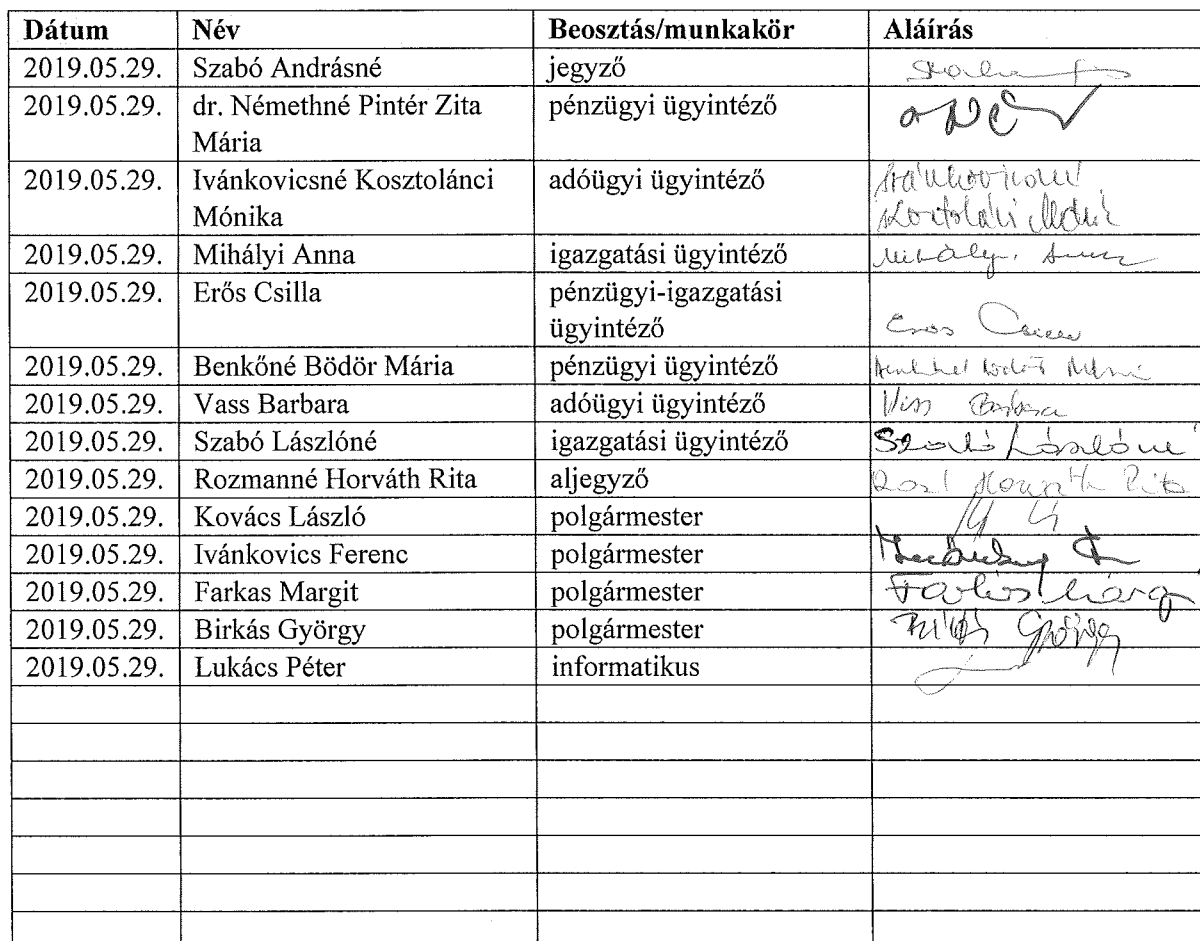 Dátum Név Beosztás/munkakör Aláírás
2019.05.29. Szabó Andrásné jegyző
2019.05.29. dr. Némethné Pintér Zita pénzügyi ügyintéző
Mária
2019.05.29. Ivánkovicsné Kosztolánci adóügyi ügyintéző
Mónika
2019.05.29. Mihályi Anna igazgatási ügyintéző Mihályi Anna
2019.05.29. Erős Csilla pénzügyi-igazgatási
ügyintéző Erős
2019.05.29. Benkőné Bödör Mária pénzügyi ügyintéző
2019.05.29. Vass Barbara adóügyi ügyintéző Vass Barbara
2019.05.29. Szabó Lászlóné igazgatási ügyintéző Szabó Lászlóné
2019.05.29. Rozmanné Horváth Rita aljegyző Horváth Rita
2019.05.29. Kovács László polgármester
2019.05.29. Ivánkovics Ferenc polgármester
2019.05.29. Farkas Margit polgármester Farkas
2019.05.29. Birkás György polgármester György
2019.05.29. Lukács Péter informatikus